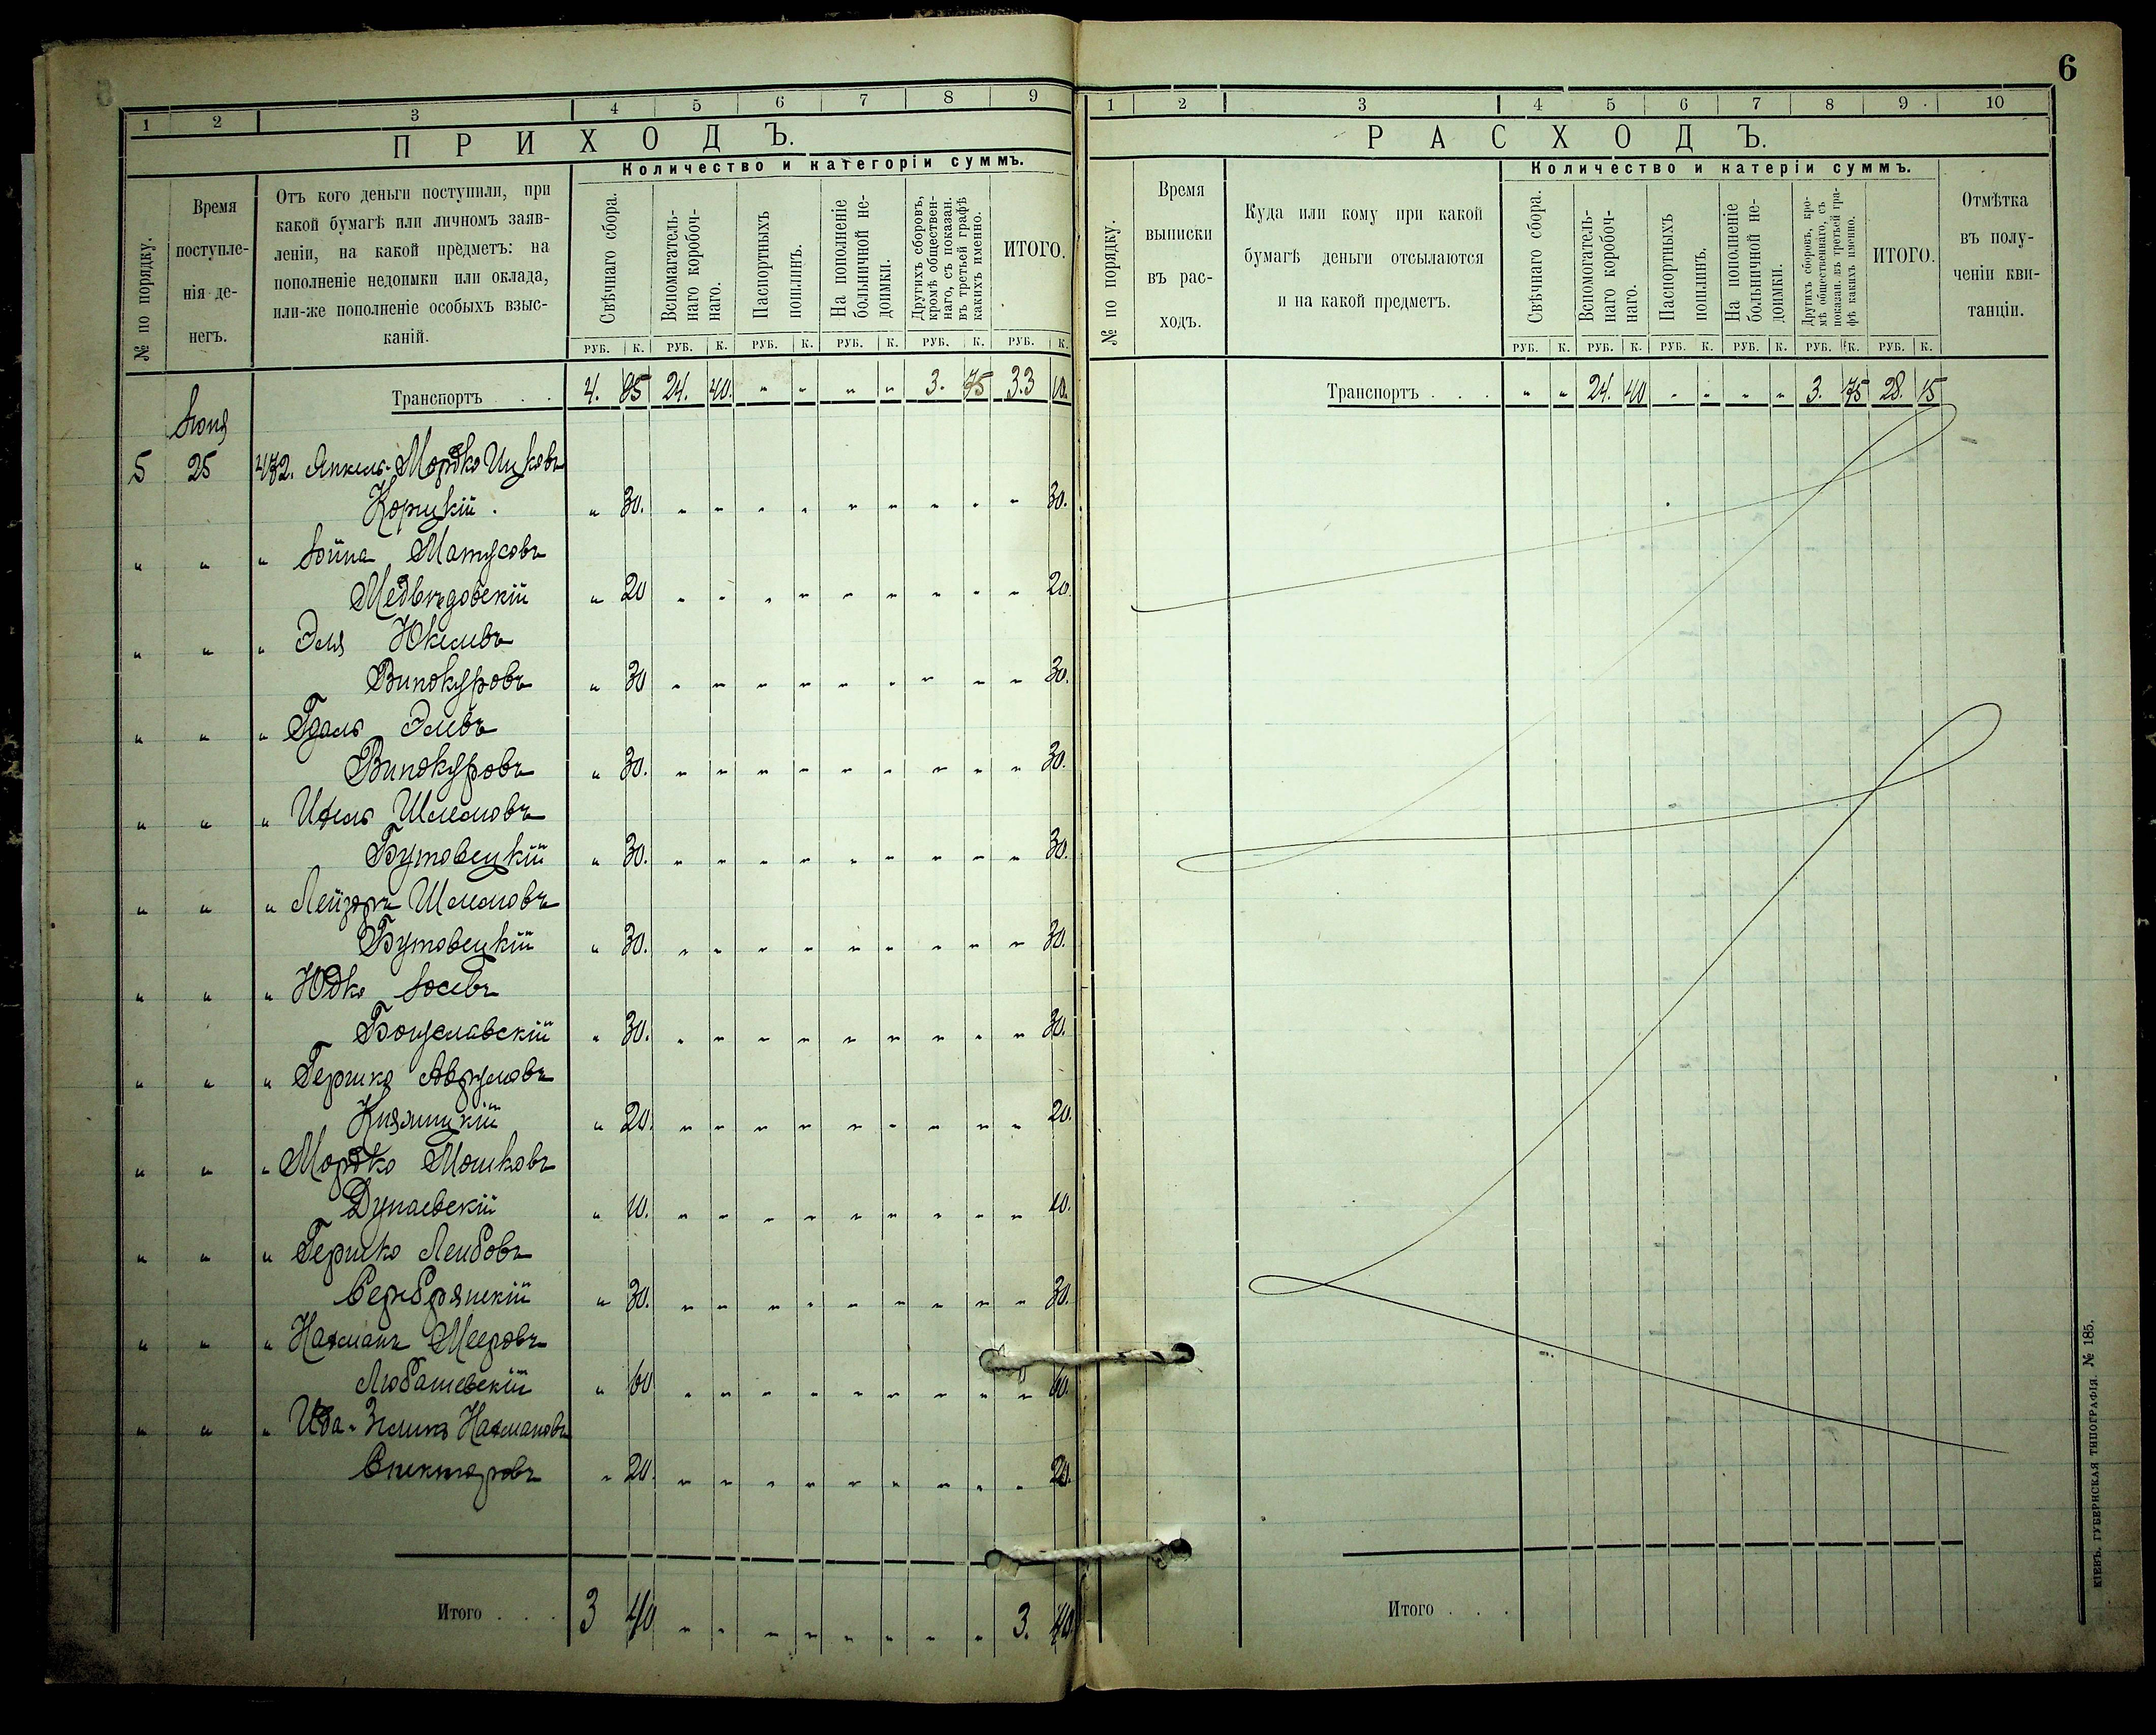 6
1 2 3 4 5 6 7 8 9
ПРИХОДЪ.
Количество и категоріи суммъ.
№ по порядку.
Время
поступле-
нія де-
негъ.
Отъ кого деньги поступили, при
какой бумагѣ или личномъ заяв-
леніи, на какой предметъ: на
пополненіе недоимки или оклада,
или-же пополненіе особыхъ взыс-
каній.
Свѣчнаго сбора.
Вспомагатель-
наго коробоч-
наго.
Паспортныхъ
пошлинъ.
На пополненіе
больничной не-
доимки.
Другихъ сборовъ,
кромѣ обществен-
наго, съ показан.
въ третьей графѣ
какихъ именно.
ИТОГО.
РУБ. К. РУБ. К. РУБ. К. РУБ. К. РУБ. К. РУБ. К.
Транспортъ . . 4. 95 24. 40. " " " " 3. 75 33 10.
Іюня
5 25 472. Янкель-Мордко Ицковъ
Корицкій. " 30. " " " " " " " " " 30.
" " " Іойна Матусовъ
Медвѣдовскій " 20 " " " " " " " " " 20.
" " " Эля Юкелевъ
Винокуровъ " 30 " " " " " " " " " 30.
" " " Гдаль Элевъ
Винокуровъ " 30. " " " " " " " " " 30.
" " " Ихель Шлемовъ
Бутовецкій " 30. " " " " " " " " " 30.
" " " Лейзоръ Шлемовъ
Бутовецкій " 30. " " " " " " " " " 30.
" " " Юдко Іосевъ
Богуславскій " 30. " " " " " " " " " 30.
" " " Гершко Аврумовъ
Княжицкій " 20. " " " " " " " " " 20.
" " " Мордко Мошковъ
Дунаевскій " 10. " " " " " " " " " 10.
" " " Гершко Лейбовъ
Серебрянскій " 30. " " " " " " " " " 30.
" " " Нахманъ Мееровъ
Любашевскій " 60 " " " " " " " " " 60.
" " " Нахмановъ
Спекторовъ " 20. " " " " " " " " " 20.
Итого . . . 3 40 " " " " " " " " 3. 40.
1 2 3 4 5 6 7 8 9 10
РАСХОДЪ.
Количество и катеріи суммъ.
№ по порядку.
Время
выписки
въ рас-
ходъ.
Куда или кому при какой
бумагѣ деньги отсылаются
и на какой предметъ.
Свѣчнаго сбора.
Вспомогатель-
наго коробоч-
наго.
Паспортныхъ
пошлинъ.
На пополненіе
больничной не-
доимки.
Другихъ сборовъ, кро-
мѣ общественнаго, съ
показан. въ третьей гра-
фѣ какихъ именно.
ИТОГО.
Отмѣтка
въ полу-
ченіи кви-
танціи.
РУБ. К. РУБ. К. РУБ. К. РУБ. К. РУБ. К. РУБ. К.
Транспортъ . . . " " 24. 40 " " " " 3. 75 28. 15
Итого . . .
КІЕВЪ. ГУБЕРНСКАЯ ТИПОГРАФІЯ. № 185.